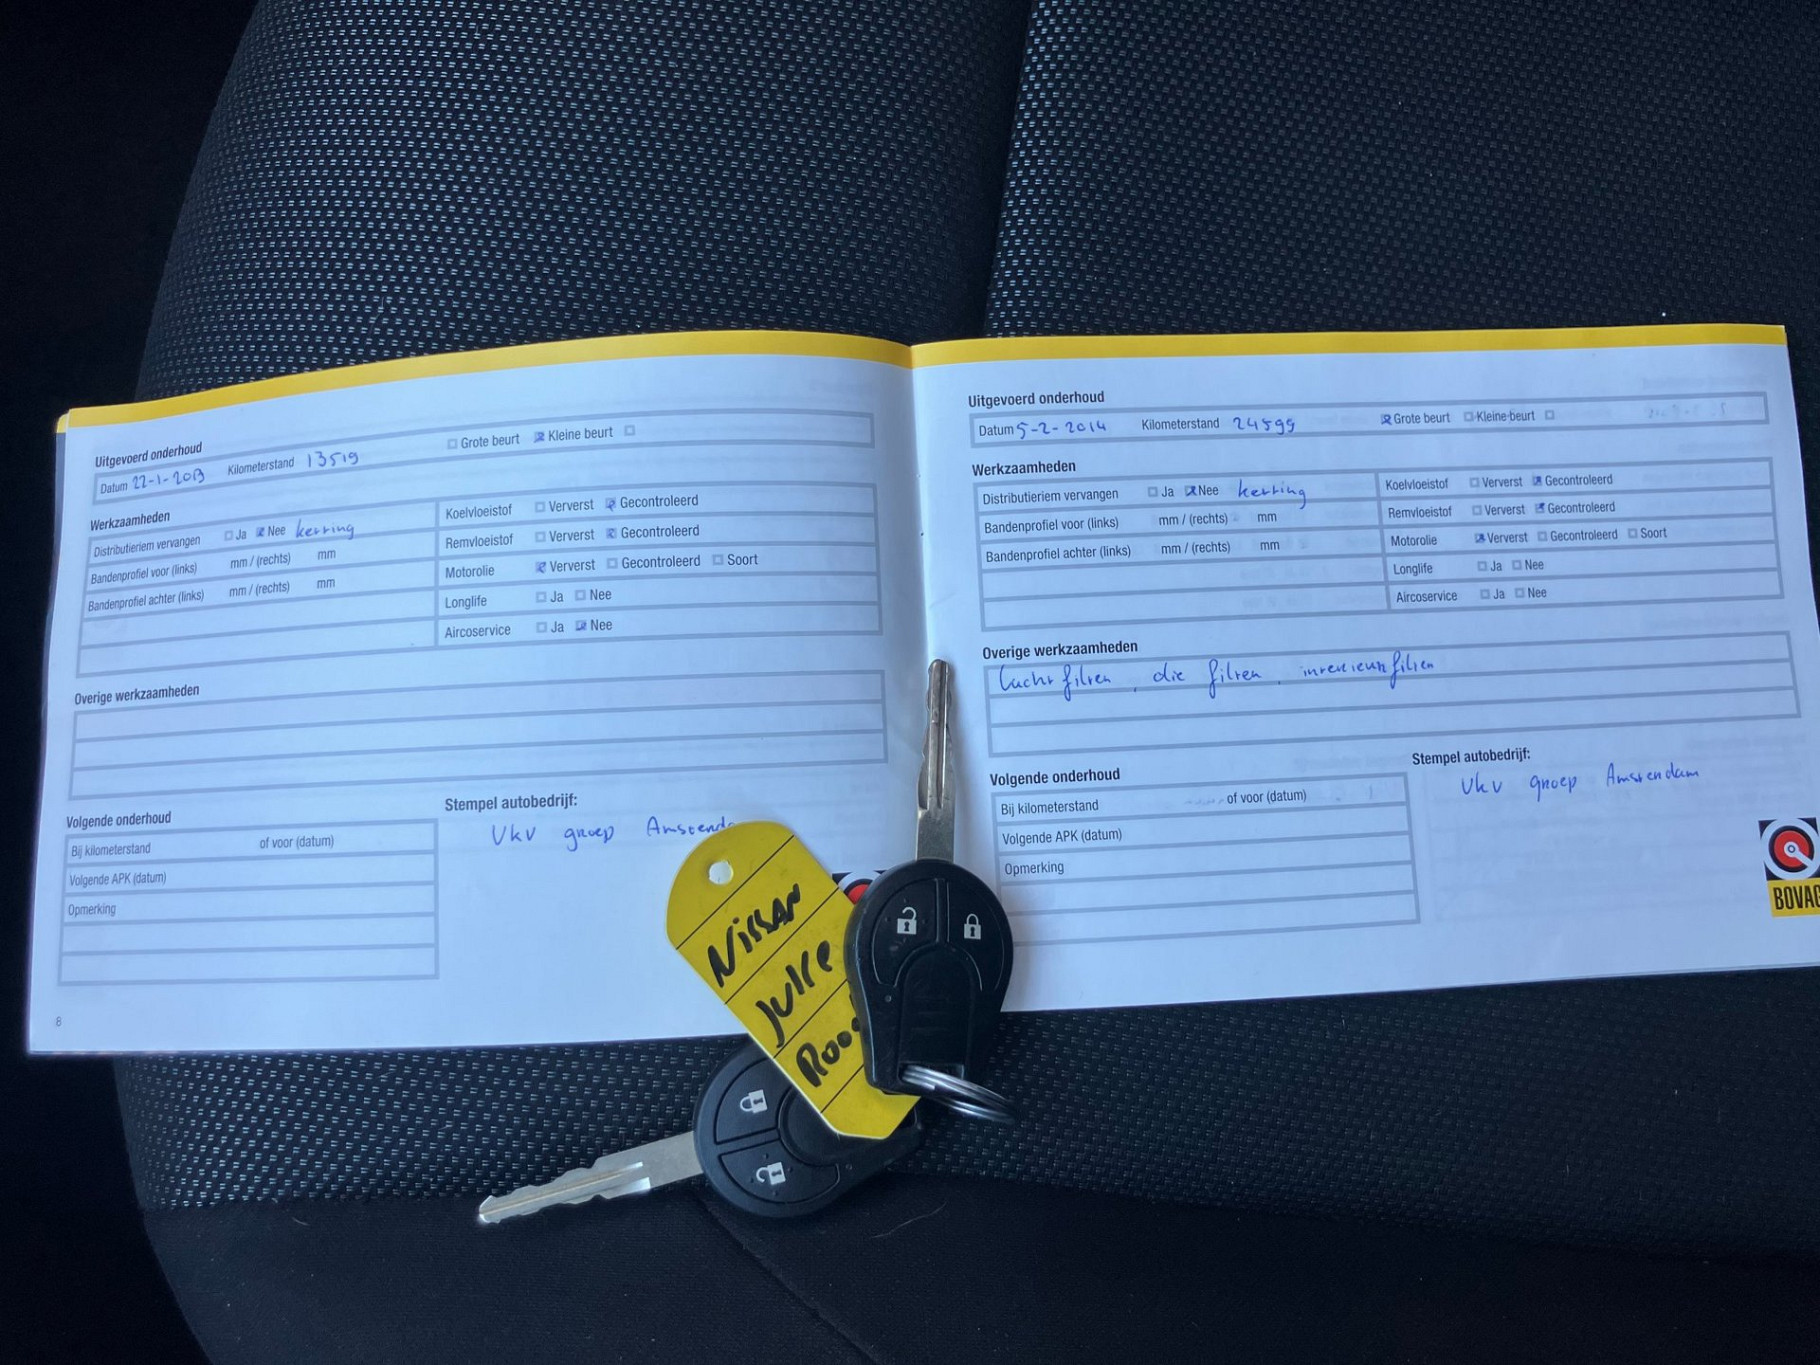 Uitgevoerd onderhoud
Datum 22-1-2013 Kilometerstand 13519 Grote beurt Kleine beurt
Werkzaamheden
Distributieriem vervangen Ja Nee kerring
Bandenprofiel voor (links) mm / (rechts) mm
Bandenprofiel achter (links) mm / (rechts) mm
Koelvloeistof Ververst Gecontroleerd
Remvloeistof Ververst Gecontroleerd
Motorolie Ververst Gecontroleerd Soort
Longlife Ja Nee
Aircoservice Ja Nee
Overige werkzaamheden
Volgende onderhoud
Bij kilometerstand of voor (datum)
Volgende APK (datum)
Opmerking
Stempel autobedrijf:
Vkv groep Amsterda
8
Uitgevoerd onderhoud
Datum 5-2-2014 Kilometerstand 24599 Grote beurt Kleine beurt
Werkzaamheden
Distributieriem vervangen Ja Nee kerring
Bandenprofiel voor (links) mm / (rechts) mm
Bandenprofiel achter (links) mm / (rechts) mm
Koelvloeistof Ververst Gecontroleerd
Remvloeistof Ververst Gecontroleerd
Motorolie Ververst Gecontroleerd Soort
Longlife Ja Nee
Aircoservice Ja Nee
Overige werkzaamheden
luchtfilter, olie filter, interieurfilter
Volgende onderhoud
Bij kilometerstand of voor (datum)
Volgende APK (datum)
Opmerking
Stempel autobedrijf:
Vkv groep Amsterdam
BOVAG
Nissan
Juke
Roo